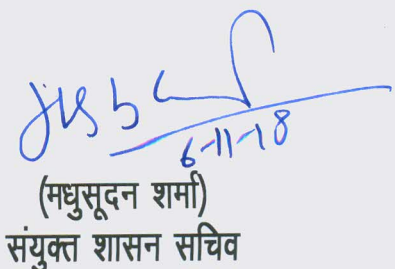 6-11-18
(मधुसूदन शर्मा)
संयुक्त शासन सचिव